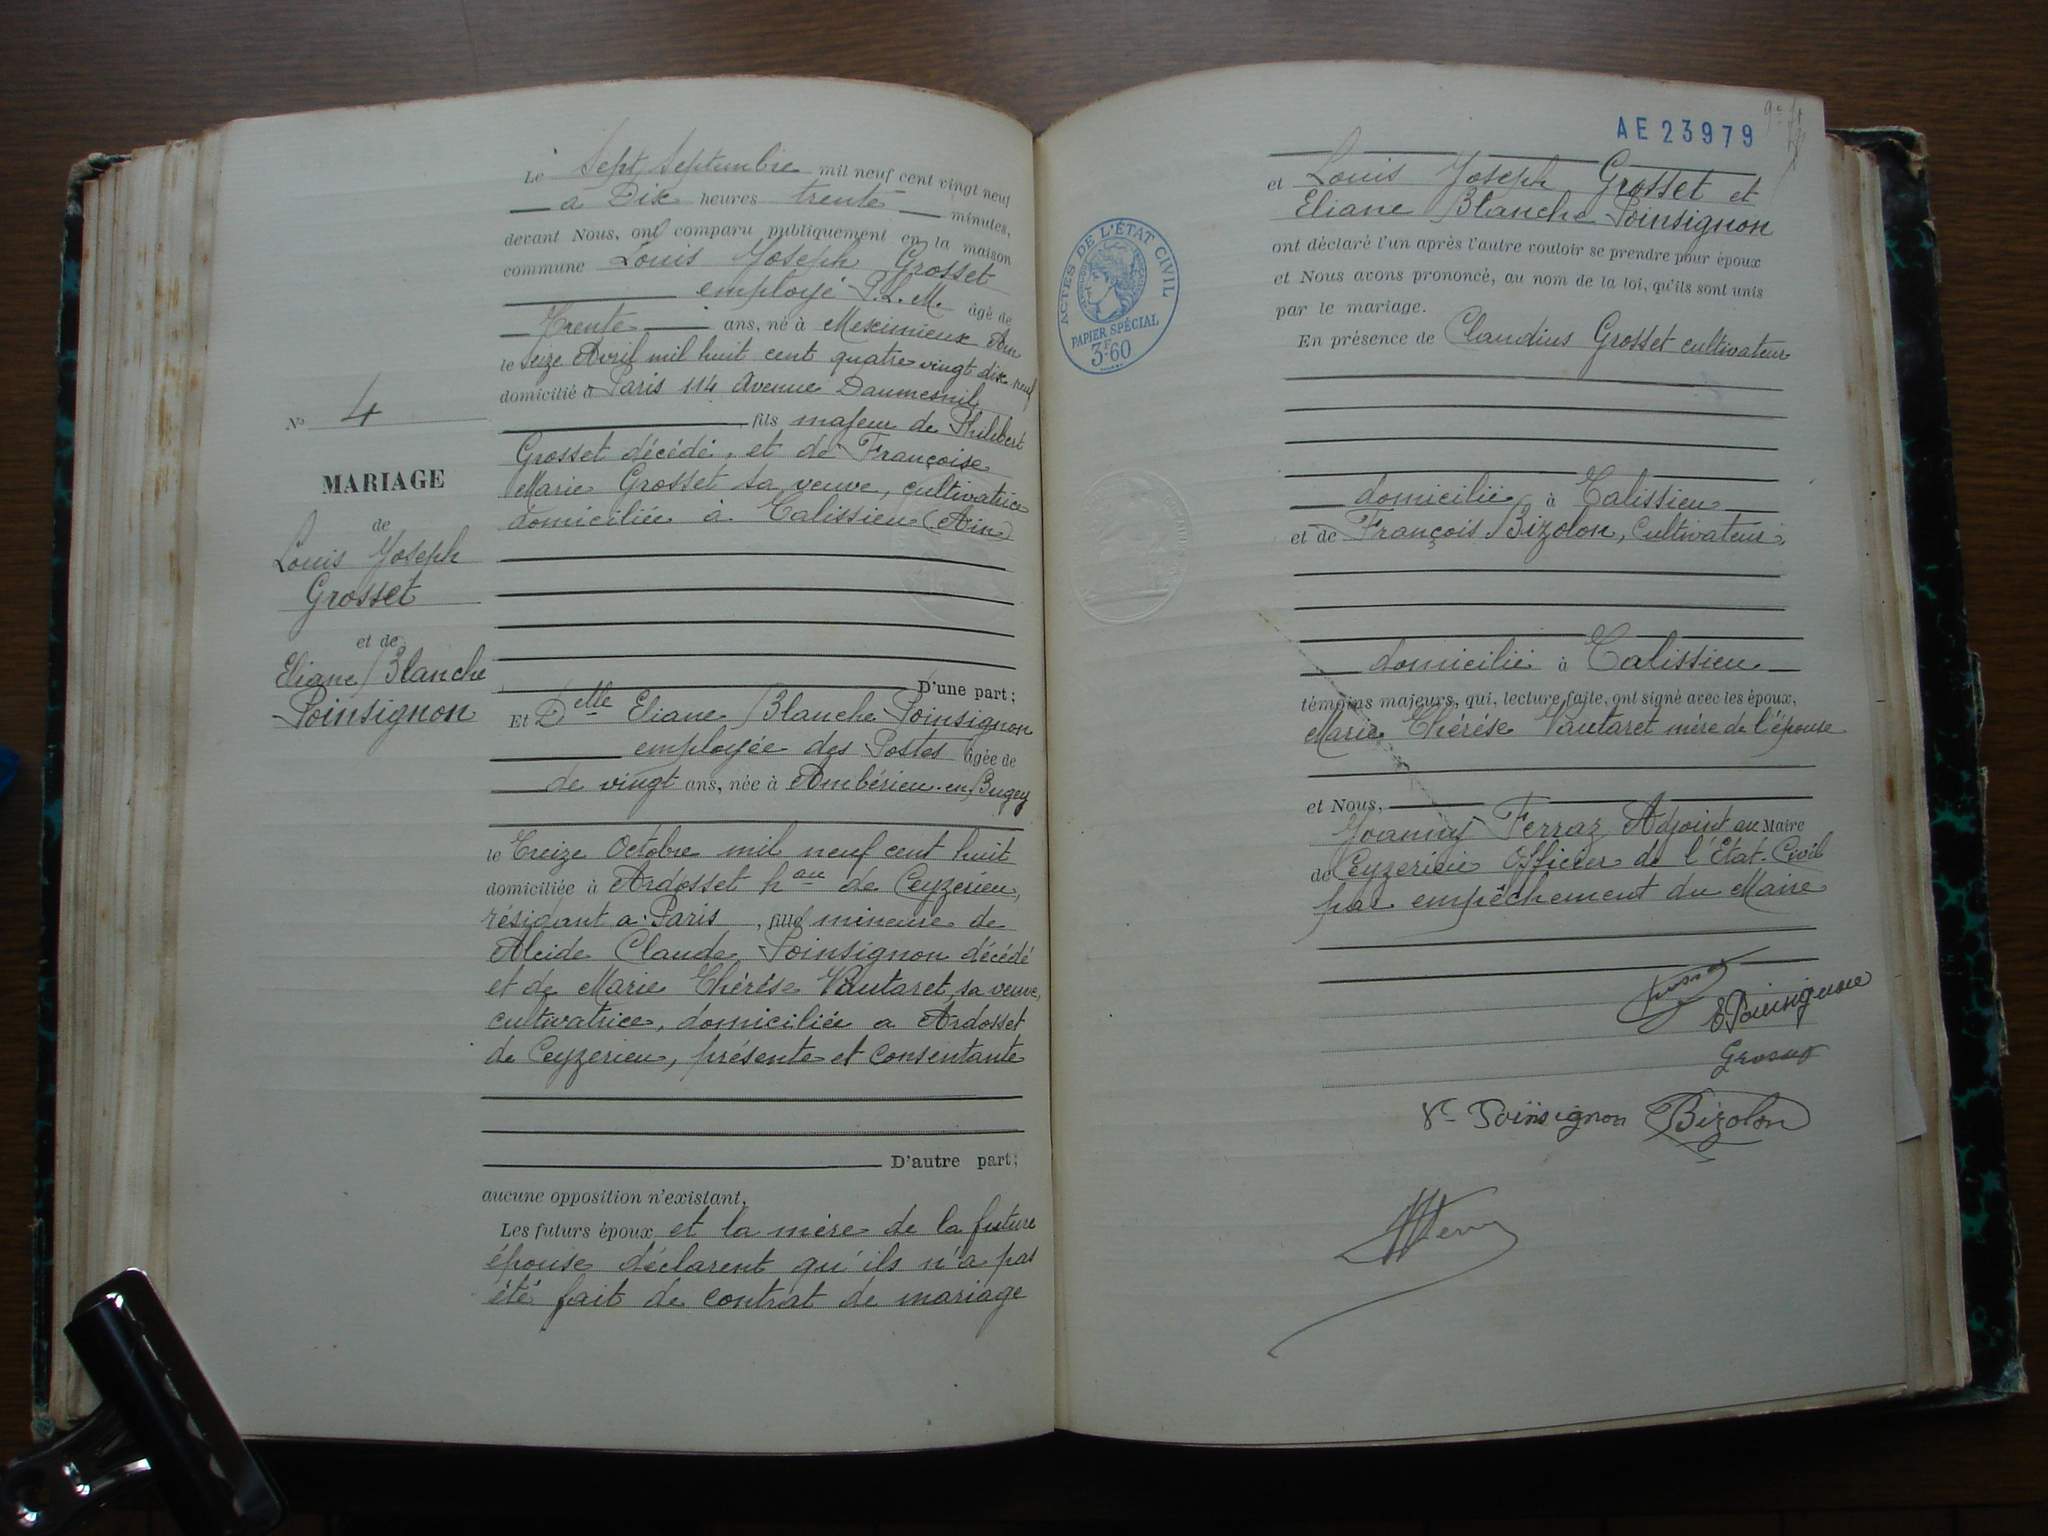 Nº 4
MARIAGE
de
Louis Joseph
Grosset
et de
Eliane Blanche
Poinsignon
Le Sept Septembre mil neuf cent vingt neuf
à Dix heures trente minutes,
devant Nous, ont comparu publiquement en la maison
commune Louis Joseph Grosset
employé P.L.M. âgé de
Trente ans, né à Meximieux Ain
le seize Avril mil huit cent quatre vingt dix neuf
domicilié à Paris 114 Avenue Daumesnil
fils majeur de Philibert
Grosset décédé, et de Françoise
Marie Grosset sa veuve, cultivatrice
domiciliée à Talissieu (Ain)
D'une part;
Et Delle Eliane Blanche Poinsignon
employée des Postes âgée de
de vingt ans, née à Ambérieu-en-Bugey
le Treize Octobre mil neuf cent huit
domiciliée à Ardosset hau de Ceyzerieu,
résidant a Paris, fille mineure de
Alcide Claude Poinsignon décédé
et de Marie Thérèse Vautaret, sa veuve,
cultivatrice, domiciliée a Ardosset
de Ceyzerieu, présente et consentante
D'autre part;
aucune opposition n'existant,
Les futurs époux et la mère de la future
épouse déclarent qu'ils n'a pas
été fait de contrat de mariage
AE 23979
ACTES DE L'ÉTAT CIVIL
PAPIER SPÉCIAL
3F60
et Louis Joseph Grosset et
Eliane Blanche Poinsignon
ont déclaré l'un après l'autre vouloir se prendre pour époux
et Nous avons prononcé, au nom de la loi, qu'ils sont unis
par le mariage.
En présence de Claudius Grosset cultivateur
domicilié à Talissieu
et de François Bizolon, cultivateur,
domicilié à Talissieu
témoins majeurs, qui, lecture faite, ont signé avec les époux,
Marie Thérèse Vautaret mère de l'épouse
et Nous,
Joanny Ferraz Adjoint au Maire
de Ceyzerieu Officier de l'Etat-Civil
par empêchement du Maire
E Poinsignon
Grosset
Ve Poinsignon Bizolon